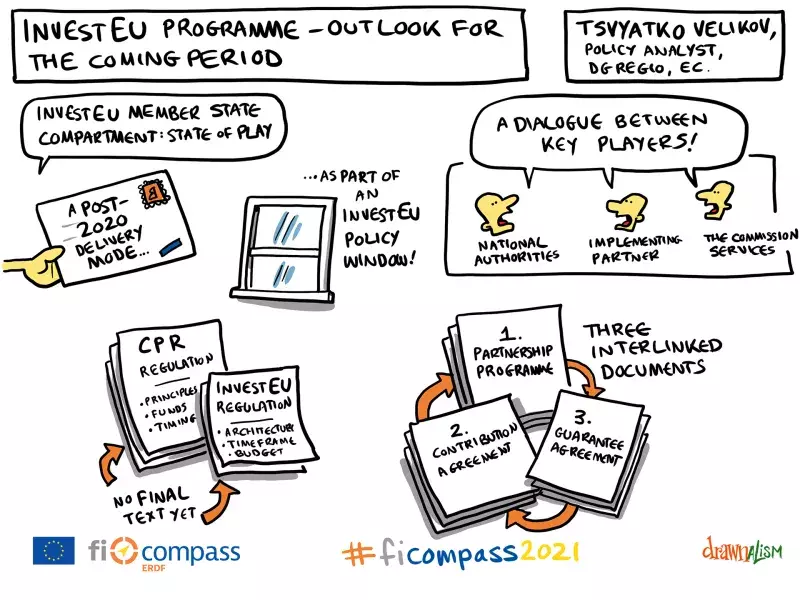 INVESTEU PROGRAMME – OUTLOOK FOR
THE COMING PERIOD
TSVYATKO VELIKOV,
POLICY ANALYST,
DG REGIO, EC.
INVESTEU MEMBER STATE
COMPARTMENT: STATE OF PLAY
A POST-
2020
DELIVERY
MODE...
...AS PART OF
AN
INVESTEU
POLICY
WINDOW!
A DIALOGUE BETWEEN
KEY PLAYERS!
NATIONAL
AUTHORITIES
IMPLEMENTING
PARTNER
THE COMMISSION
SERVICES
CPR
REGULATION
• PRINCIPLES
• FUNDS
• TIMING
INVESTEU
REGULATION
• ARCHITECTURE
• TIMEFRAME
• BUDGET
NO FINAL
TEXT YET
1.
PARTNERSHIP
PROGRAMME
THREE
INTERLINKED
DOCUMENTS
2.
CONTRIBUTION
AGREEMENT
3.
GUARANTEE
AGREEMENT
fi compass
ERDF
#ficompass2021
drawnalism